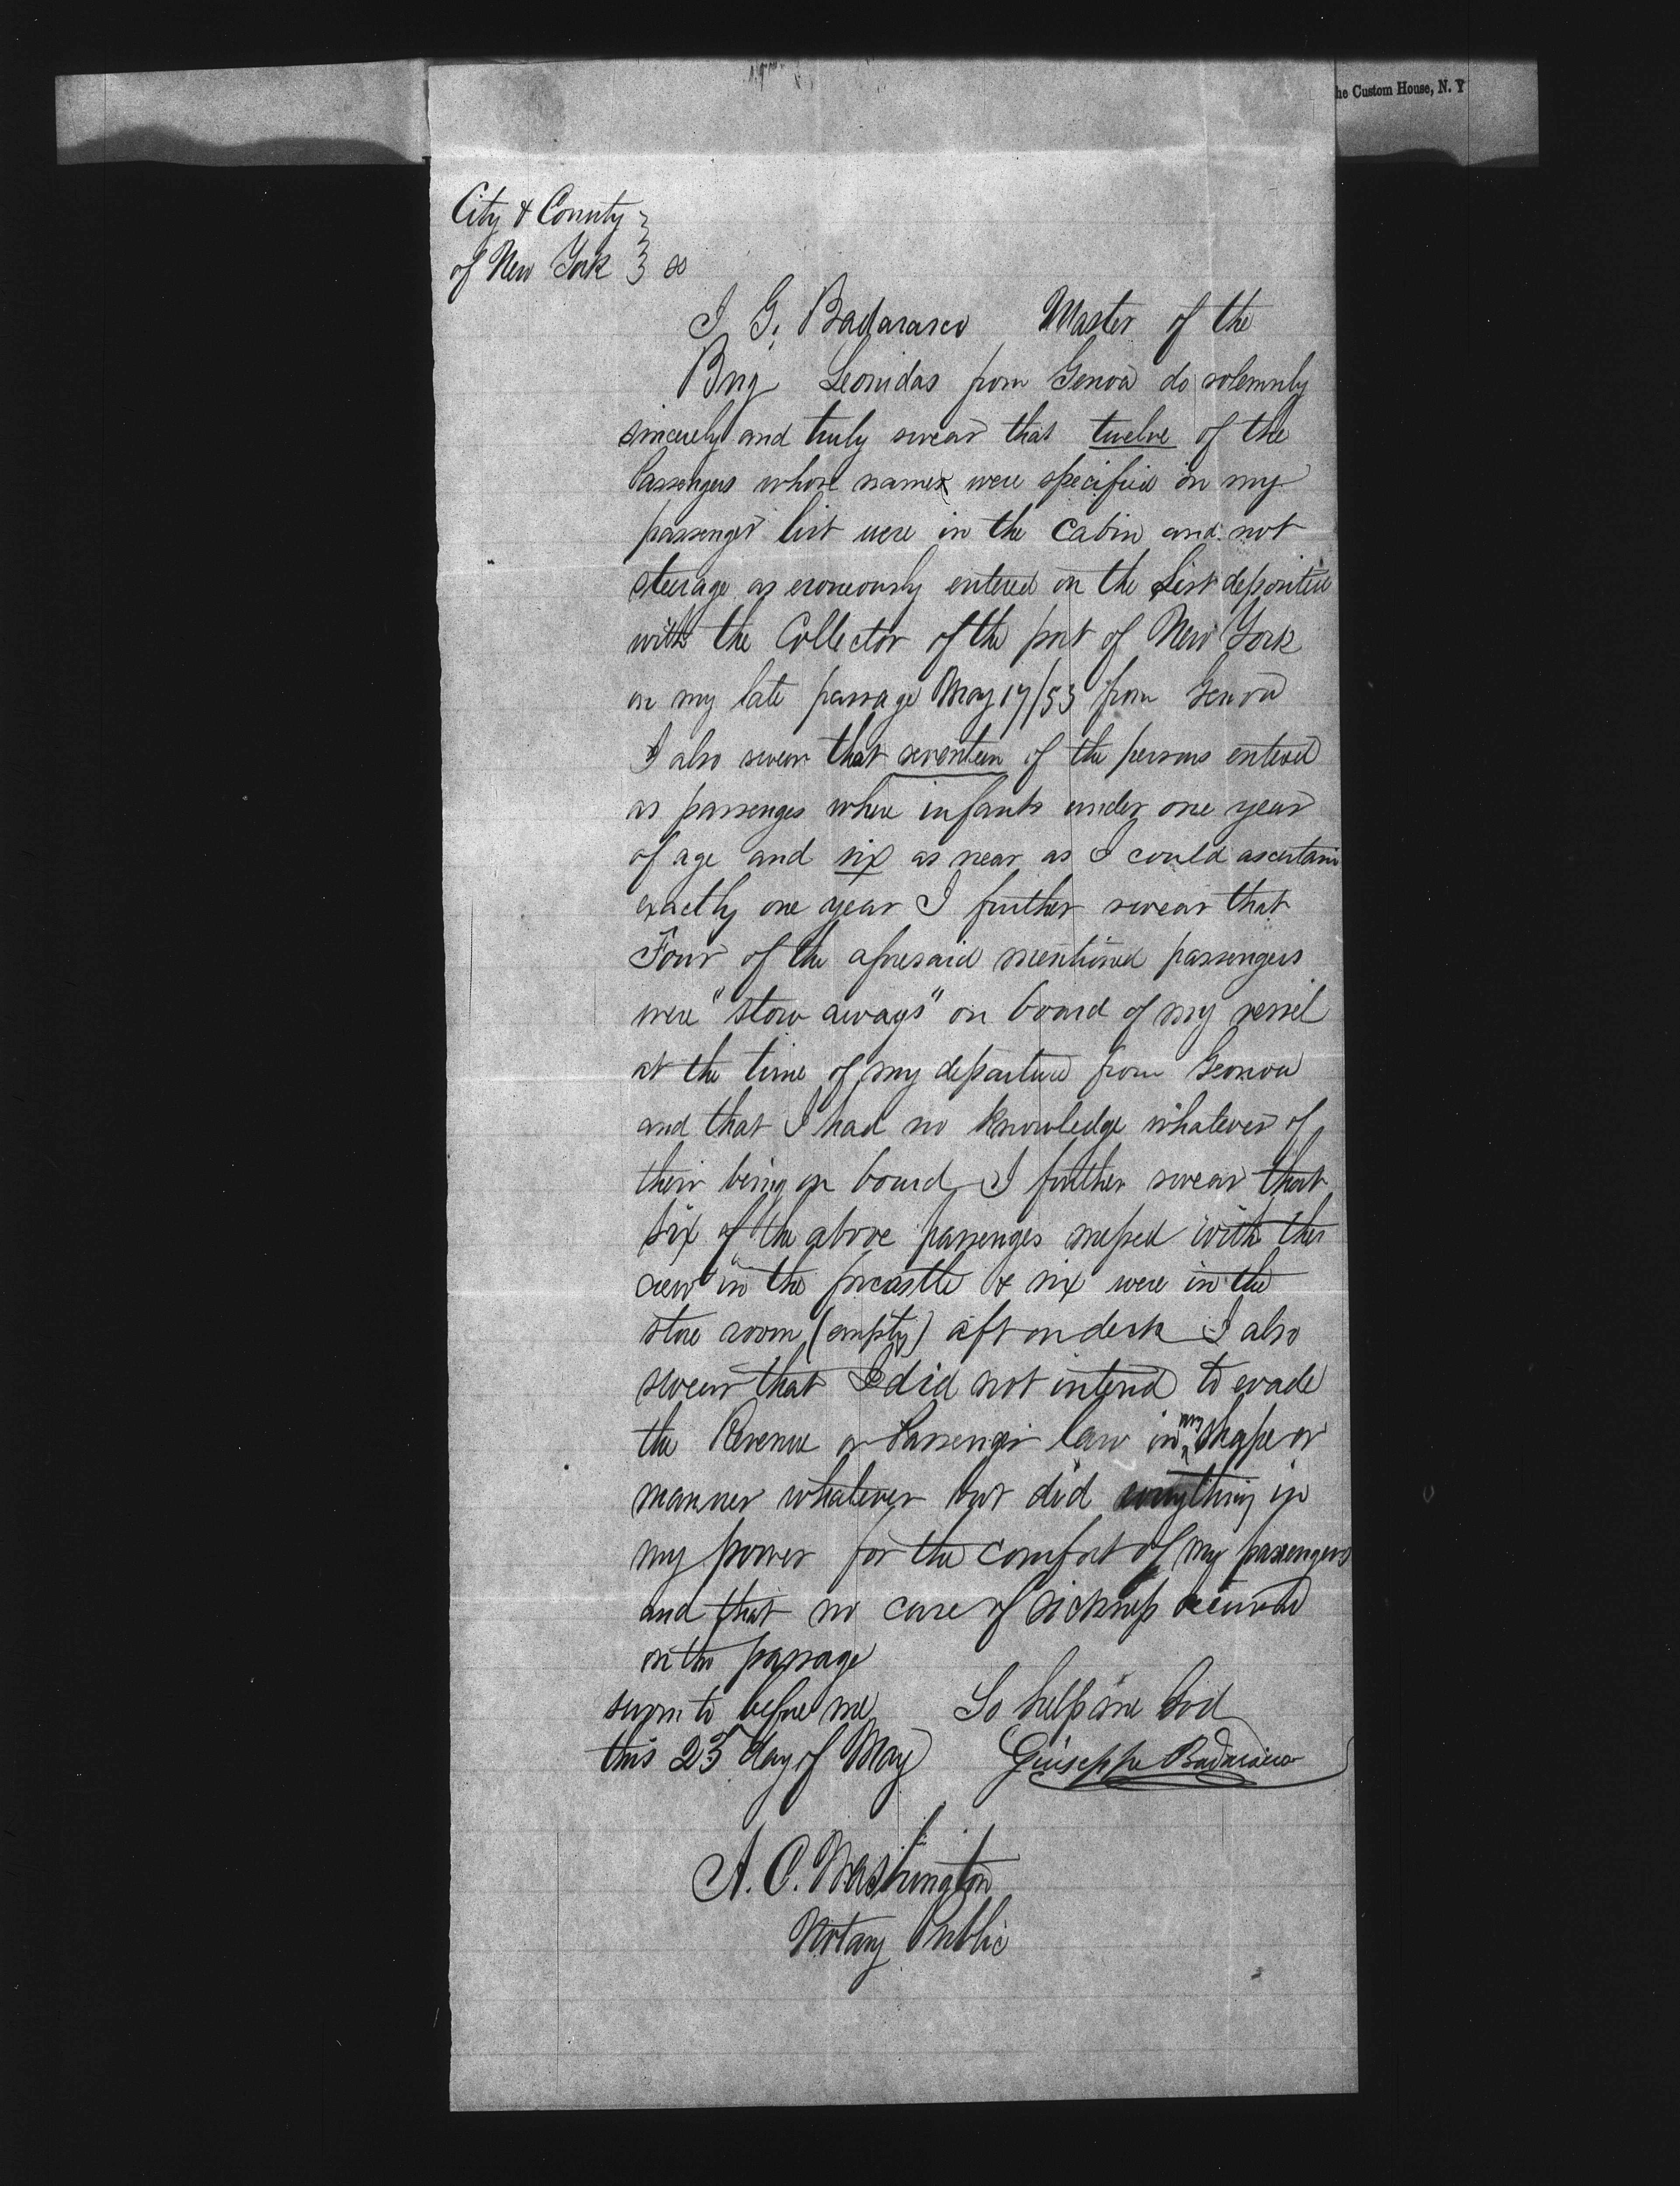 he Custom House, N. Y
City & County }
of New York } ss
I G. Badaracco Master of the
Brig Leonidas from Genoa do solemnly
sincerely and truly swear that twelve of the
Passengers whose names were specified in my
passenger list were in the cabin and not
steerage as eroneously entered on the List deposited
with the Collector of the port of New York
on my late passage May 17/53 from Genoa
I also swear that seventeen of the persons entered
as passenges where infants under one year
of age and six as near as I could ascertain
exactly one year I further swear that
Four of the aforesaid mentioned passengers
were "stow aways" on board of my vessel
at the time of my departure from Genoa
and that I had no knowledge whatever of
their being on board I further swear that
six of the above passenges messed with the
crew in the forcastle & six were in the
store room (empty) aft on deck I also
swear that I did not intend to evade
the Revenue or Passenger law in any shape or
manner whatever but did everything in
my power for the comfort of my passengers
and that no case of sickness occurred
on the passage
sworn to before me So help me God
this 23 day of May Giuseppe Badaracco
A. C. Washington
Notary Public